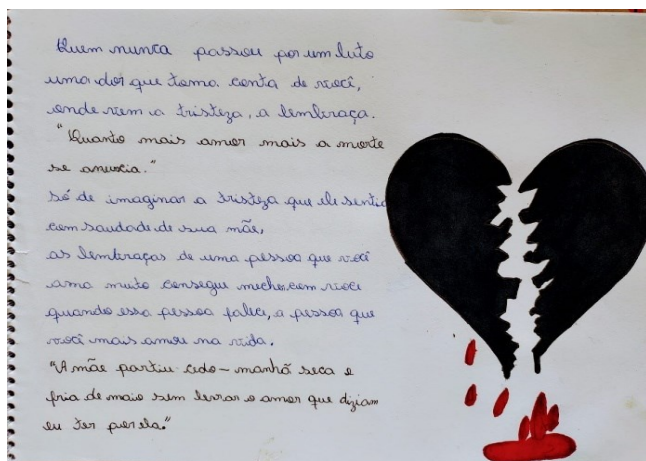 Quem nunca passou por um luto
uma dor que toma conta de você,
onde vem a tristeza, a lembraça.
"Quanto mais amor mais a morte
se anuncia."
Só de imaginar a tristeza que ele sentia
com saudade de sua mãe,
as lembraças de uma pessoa que você
ama muito consegue mecher com você
quando essa pessoa faleci, a pessoa que
você mais amou na vida.
"A mãe partiu cedo - manhã seca e
fria de maio sem levar o amor que diziam
eu ter por ela."